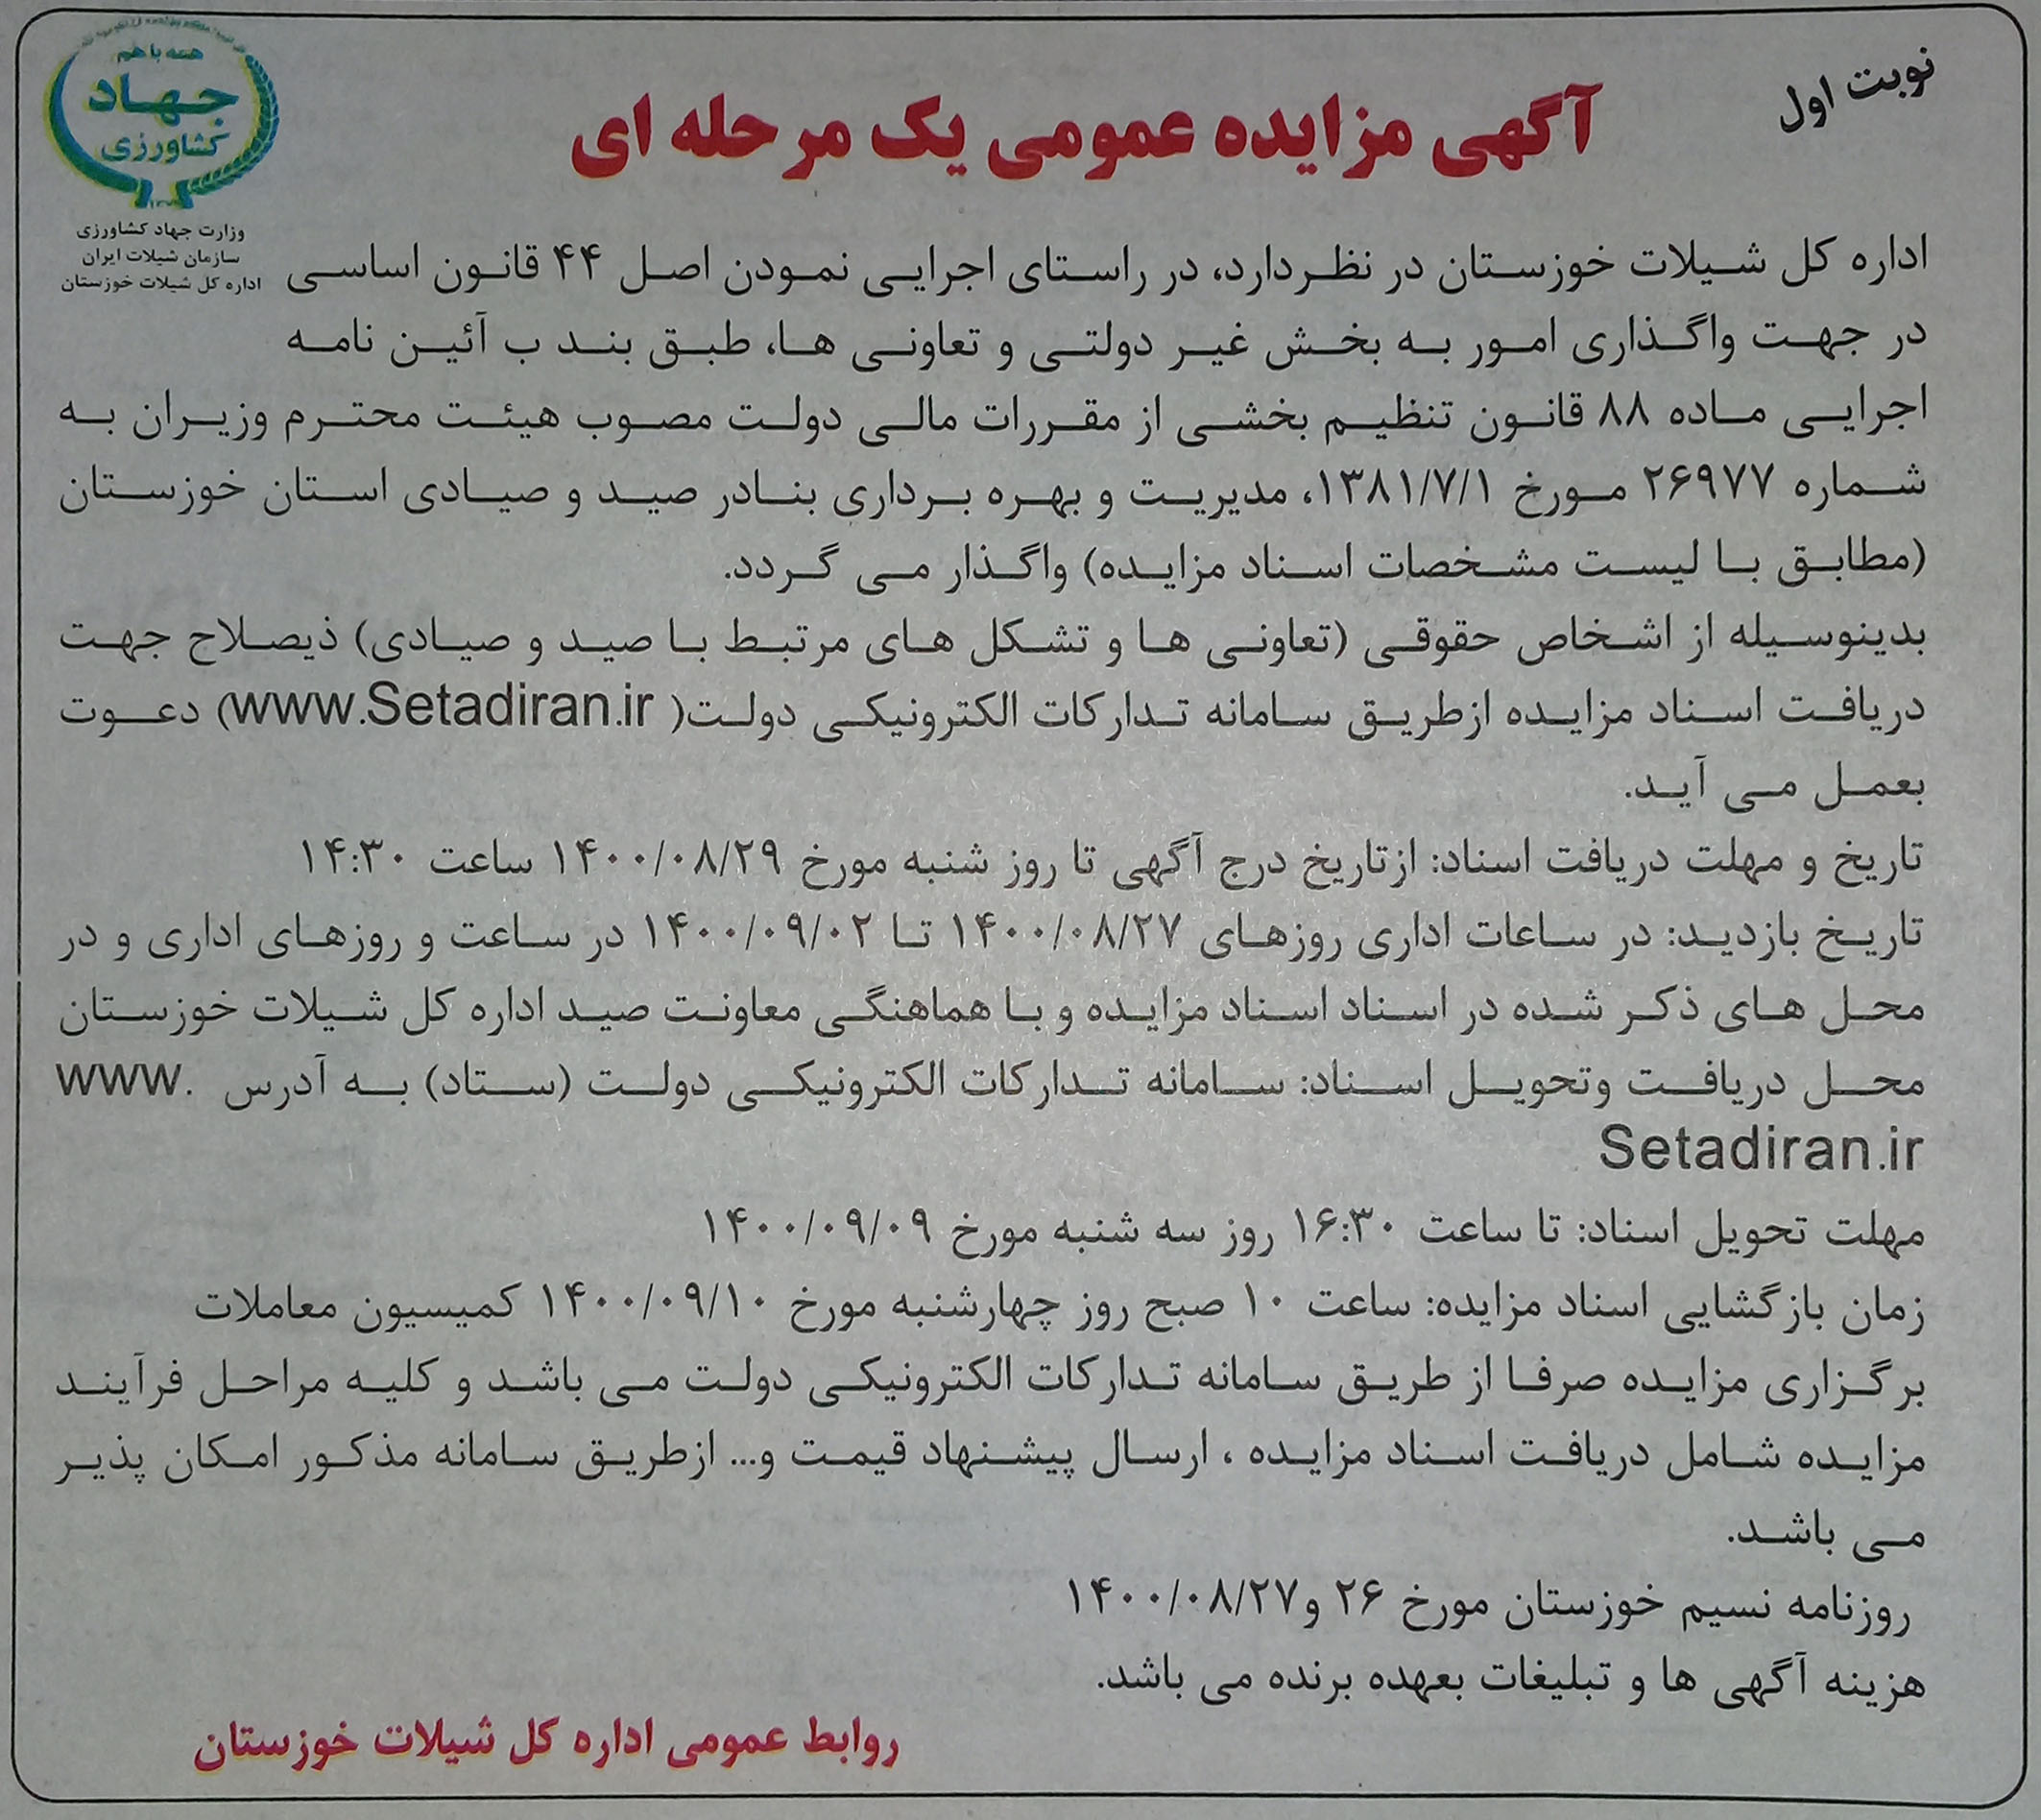 نوبت اول
آگهی مزایده عمومی یک مرحله ای
همه با هم
جهاد
کشاورزی
وزارت جهاد کشاورزی
سازمان شیلات ایران
اداره کل شیلات خوزستان
اداره کل شیلات خوزستان در نظردارد، در راستای اجرایی نمودن اصل ۴۴ قانون اساسی
در جهت واگذاری امور به بخش غیر دولتی و تعاونی ها، طبق بند ب آئین نامه
اجرایی ماده ۸۸ قانون تنظیم بخشی از مقررات مالی دولت مصوب هیئت محترم وزیران به
شماره ۲۶۹۷۷ مورخ ۱۳۸۱/۷/۱، مدیریت و بهره برداری بنادر صید و صیادی استان خوزستان
(مطابق با لیست مشخصات اسناد مزایده) واگذار می گردد.
بدینوسیله از اشخاص حقوقی (تعاونی ها و تشکل های مرتبط با صید و صیادی) ذیصلاح جهت
دریافت اسناد مزایده ازطریق سامانه تدارکات الکترونیکی دولت( www.Setadiran.ir) دعوت
بعمل می آید.
تاریخ و مهلت دریافت اسناد: ازتاریخ درج آگهی تا روز شنبه مورخ ۱۴۰۰/۰۸/۲۹ ساعت ۱۴:۳۰
تاریخ بازدید: در ساعات اداری روزهای ۱۴۰۰/۰۸/۲۷ تا ۱۴۰۰/۰۹/۰۲ در ساعت و روزهای اداری و در
محل های ذکر شده در اسناد اسناد مزایده و با هماهنگی معاونت صید اداره کل شیلات خوزستان
محل دریافت وتحویل اسناد: سامانه تدارکات الکترونیکی دولت (ستاد) به آدرس www.
Setadiran.ir
مهلت تحویل اسناد: تا ساعت ۱۶:۳۰ روز سه شنبه مورخ ۱۴۰۰/۰۹/۰۹
زمان بازگشایی اسناد مزایده: ساعت ۱۰ صبح روز چهارشنبه مورخ ۱۴۰۰/۰۹/۱۰ کمیسیون معاملات
برگزاری مزایده صرفا از طریق سامانه تدارکات الکترونیکی دولت می باشد و کلیه مراحل فرآیند
مزایده شامل دریافت اسناد مزایده ، ارسال پیشنهاد قیمت و... ازطریق سامانه مذکور امکان پذیر
می باشد.
روزنامه نسیم خوزستان مورخ ۲۶ و۱۴۰۰/۰۸/۲۷
هزینه آگهی ها و تبلیغات بعهده برنده می باشد.
روابط عمومی اداره کل شیلات خوزستان